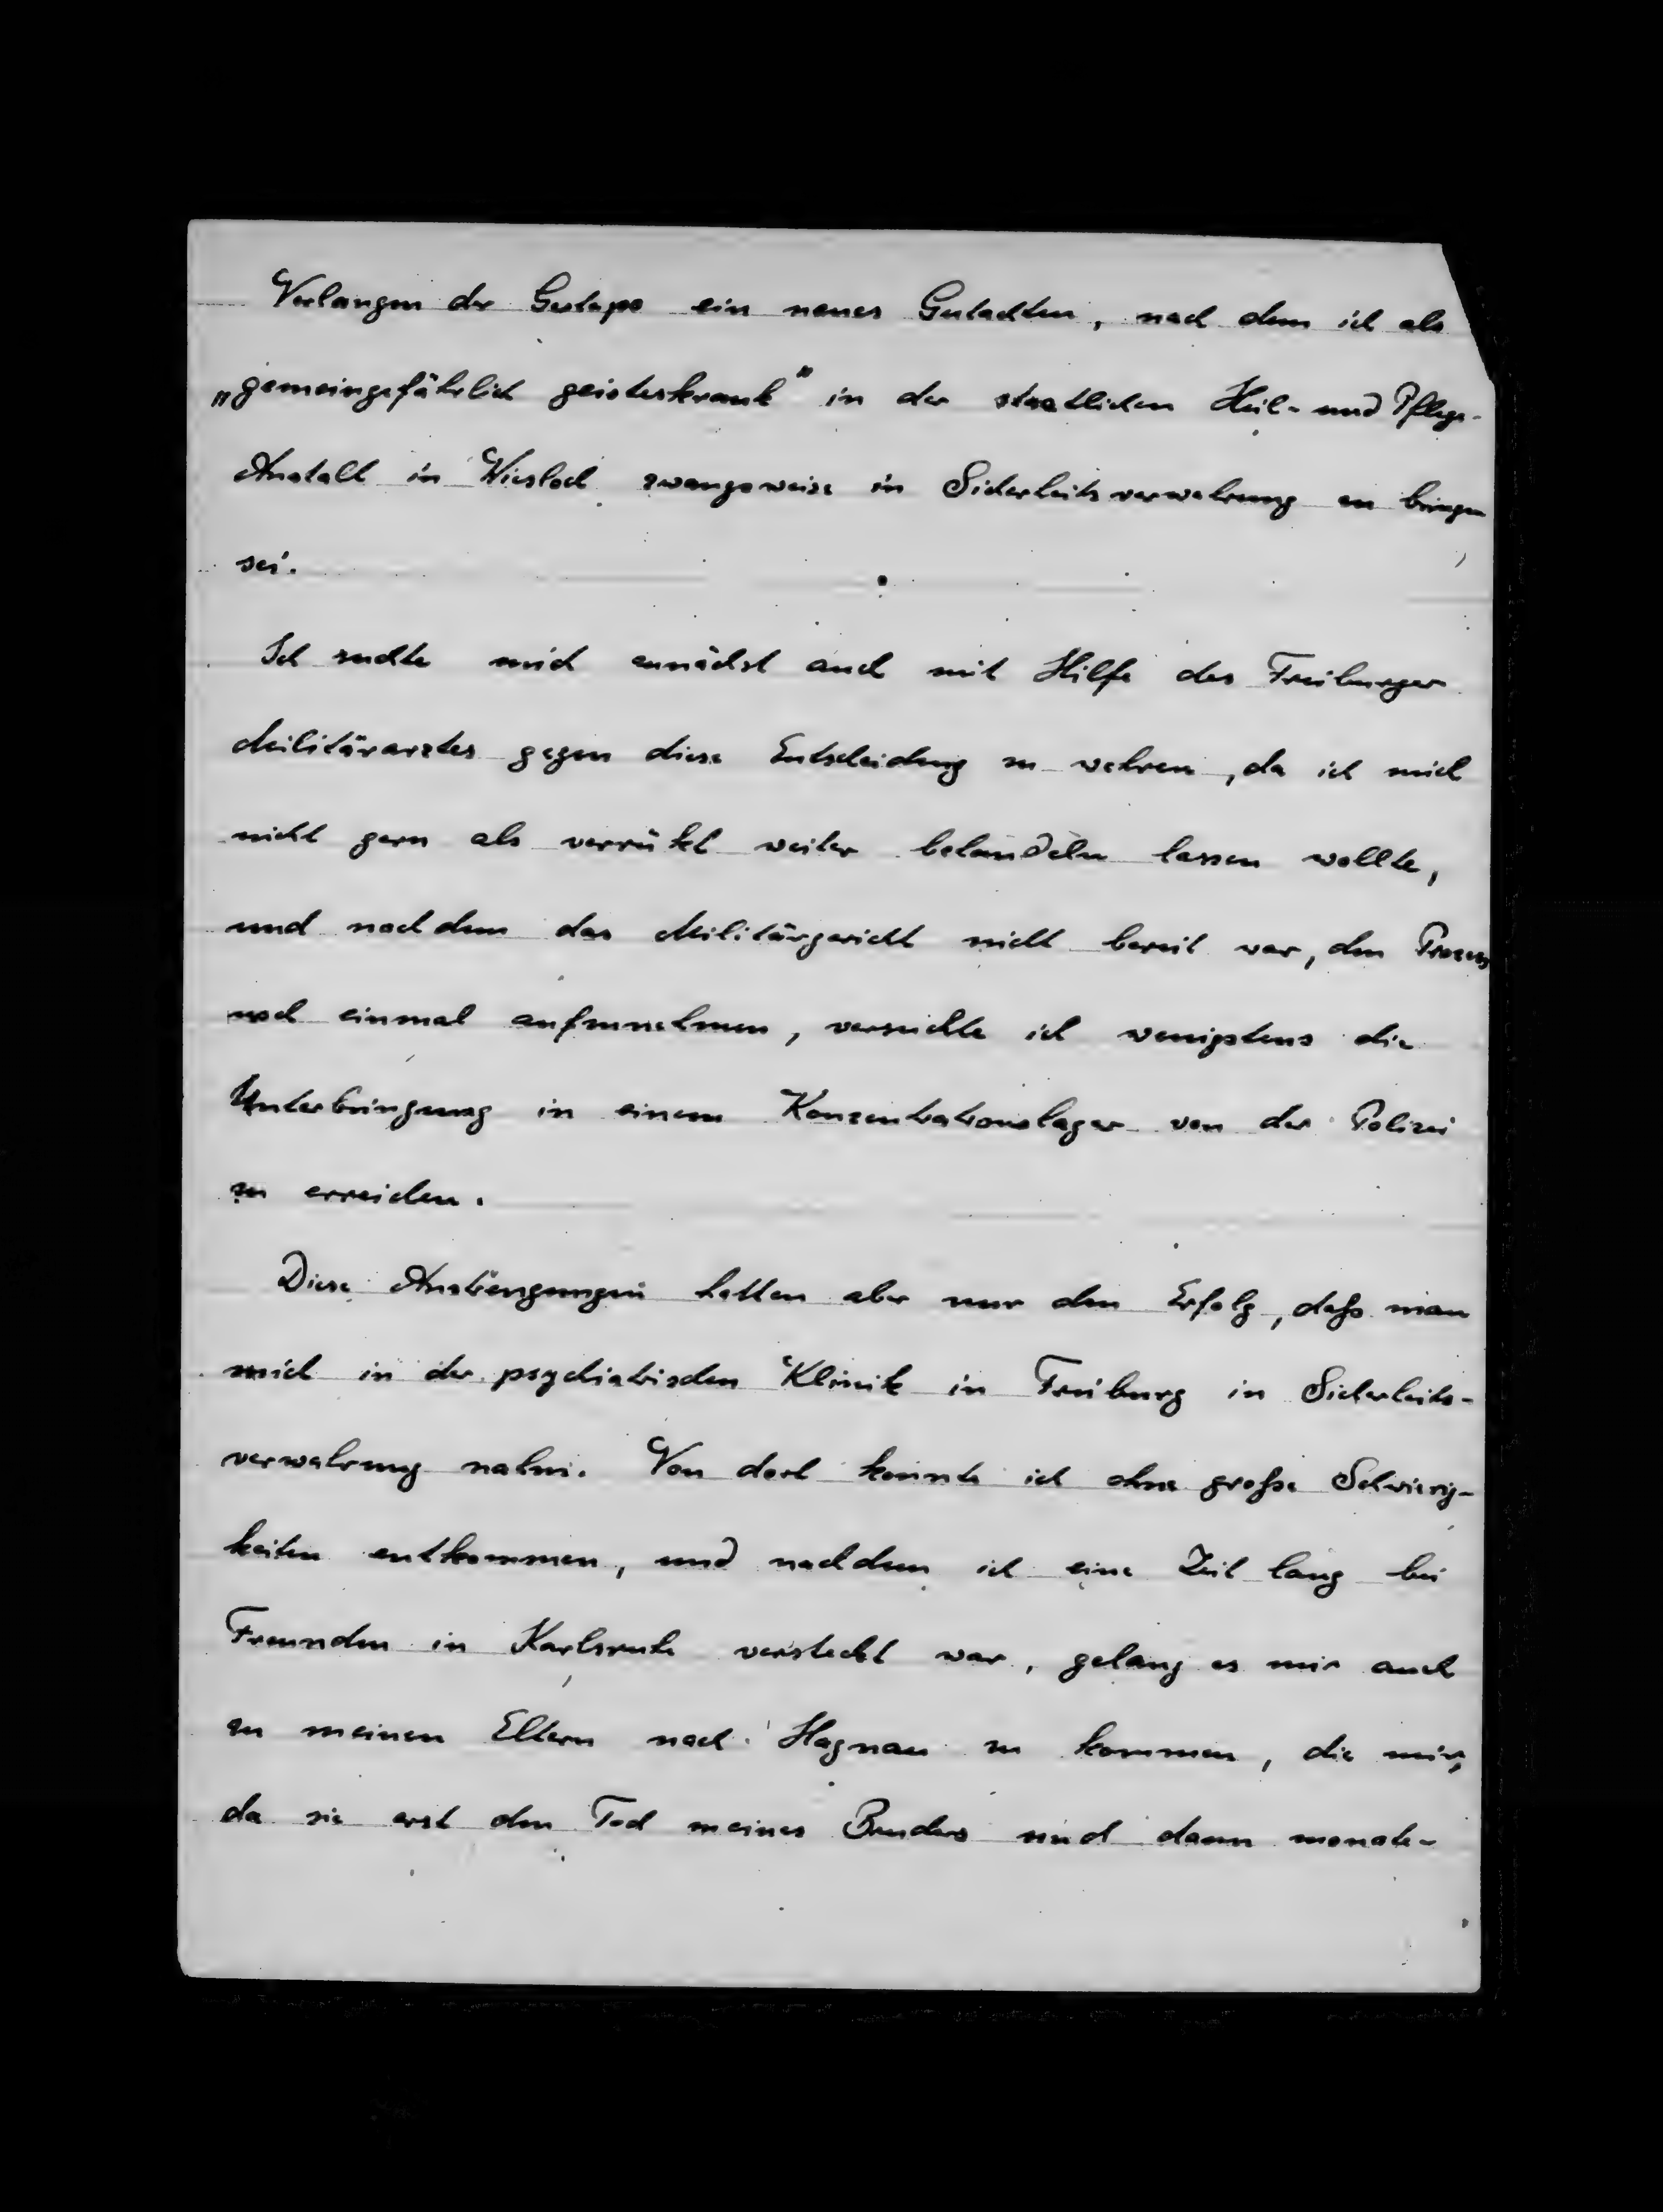 Verlangen der Gestapo ein neues Gutachten, nach dem ich als
„gemeingefährlich geisteskrank" in der staatlichen Heil- und Pflege-
Anstalt in Wiesloch zwangsweise in Sicherheitsverwahrung zu bringen
sei.
Ich suchte mich zunächst auch mit Hilfe des Freiburger
Militärarztes gegen diese Entscheidung zu wehren, da ich mich
nicht gern als verrückt weiter behandeln lassen wollte,
und nachdem das Militärgericht nicht bereit war, den Prozess
noch einmal aufzunehmen, versuchte ich wenigstens die
Unterbringung in einem Konzentrationslager von der Polizei
zu erreichen.
Diese Anstrengungen hatten aber nur den Erfolg, daß man
mich in der psychiatrischen Klinik in Freiburg in Sicherheits-
verwahrung nahm. Von dort konnte ich ohne große Schwierig-
keiten entkommen, und nachdem ich eine Zeit lang bei
Freunden in Karlsruhe versteckt war, gelang es mir auch
zu meinen Eltern nach Hagnau zu kommen, die mir,
da sie erst den Tod meines Bruders und dann monate-